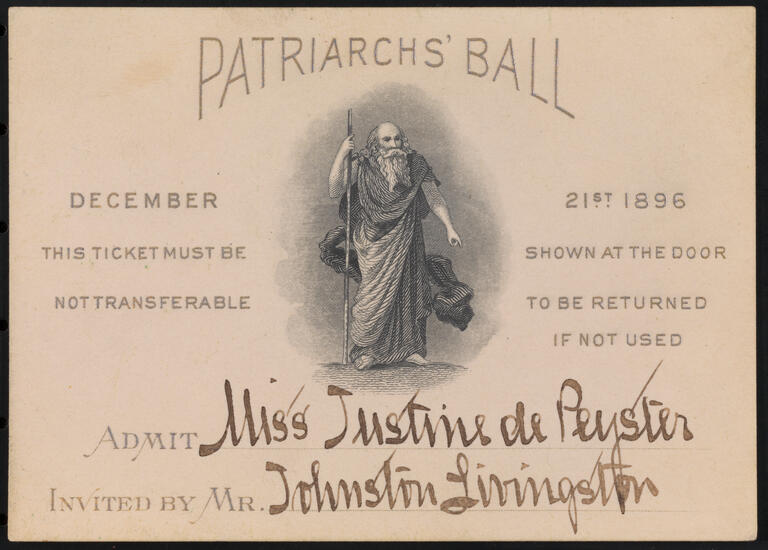 PATRIARCHS' BALL
DECEMBER 21ST 1896
THIS TICKET MUST BE SHOWN AT THE DOOR
NOT TRANSFERABLE TO BE RETURNED
IF NOT USED
ADMIT Miss Justine de Peyster
INVITED BY MR. Johnston Livingston